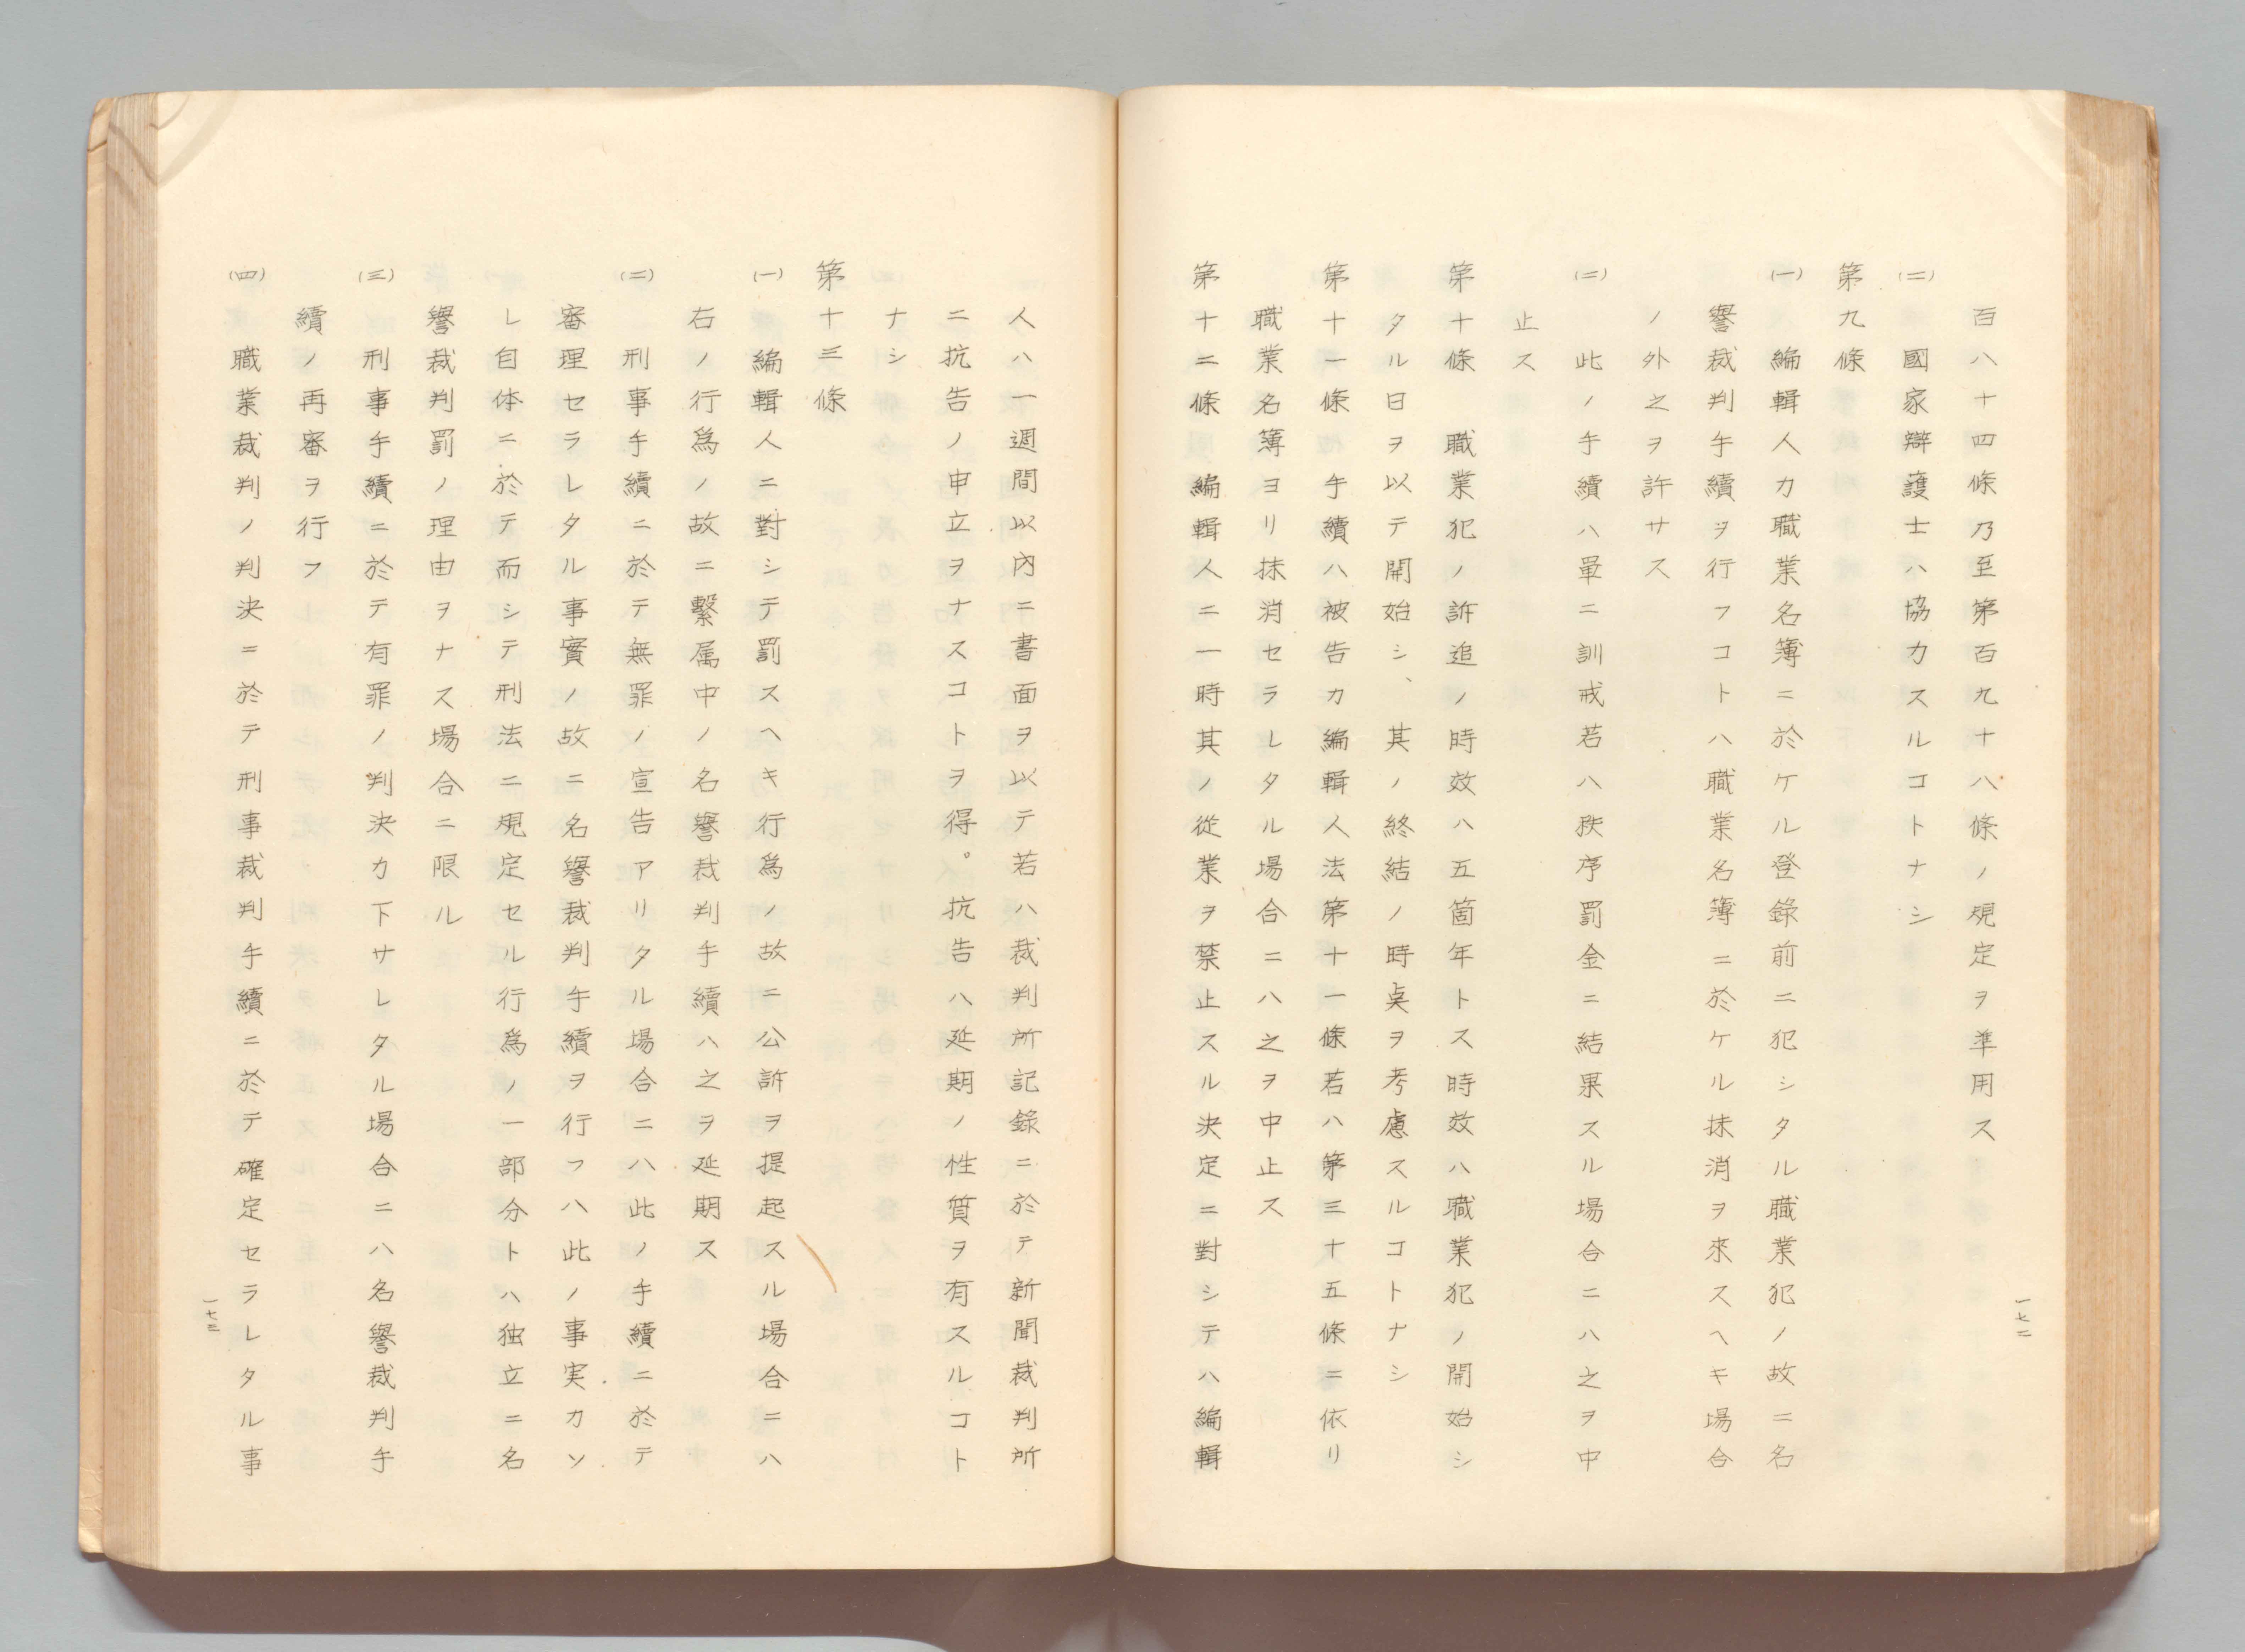 百八十四條乃至第百九十八條ノ規定ヲ準用ス
(二) 國家辯護士ハ協力スルコトナシ
第九條
(一) 編輯人カ職業名簿ニ於ケル登錄前ニ犯シタル職業犯ノ故ニ名
譽裁判手續ヲ行フコトハ職業名簿ニ於ケル抹消ヲ來スヘキ場合
ノ外之ヲ許サス
(二) 此ノ手續ハ單ニ訓戒若ハ秩序罰金ニ結果スル場合ニハ之ヲ中
止ス
第十條 職業犯ノ訴追ノ時效ハ五箇年トス時效ハ職業犯ノ開始シ
タル日ヲ以テ開始シ、其ノ終結ノ時奌ヲ考慮スルコトナシ
第十一條 手續ハ被告カ編輯人法第十一條若ハ第三十五條ニ依リ
職業名簿ヨリ抹消セラレタル場合ニハ之ヲ中止ス
第十二條 編輯人ニ一時其ノ從業ヲ禁止スル決定ニ對シテハ編輯
一七二
人ハ一週間以內ニ書面ヲ以テ若ハ裁判所記錄ニ於テ新聞裁判所
ニ抗告ノ申立ヲナスコトヲ得。抗告ハ延期ノ性質ヲ有スルコト
ナシ
第十三條
(一) 編輯人ニ對シテ罰スヘキ行爲ノ故ニ公訴ヲ提起スル場合ニハ
右ノ行爲ノ故ニ繫属中ノ名譽裁判手續ハ之ヲ延期ス
(二) 刑事手續ニ於テ無罪ノ宣告アリタル場合ニハ此ノ手續ニ於テ
審理セラレタル事實ノ故ニ名譽裁判手續ヲ行フハ此ノ事実カソ
レ自体ニ於テ而シテ刑法ニ規定セル行爲ノ一部分トハ独立ニ名
譽裁判罰ノ理由ヲナス場合ニ限ル
(三) 刑事手續ニ於テ有罪ノ判決カ下サレタル場合ニハ名譽裁判手
續ノ再審ヲ行フ
(四) 職業裁判ノ判決ニ於テ刑事裁判手續ニ於テ確定セラレタル事
一七三